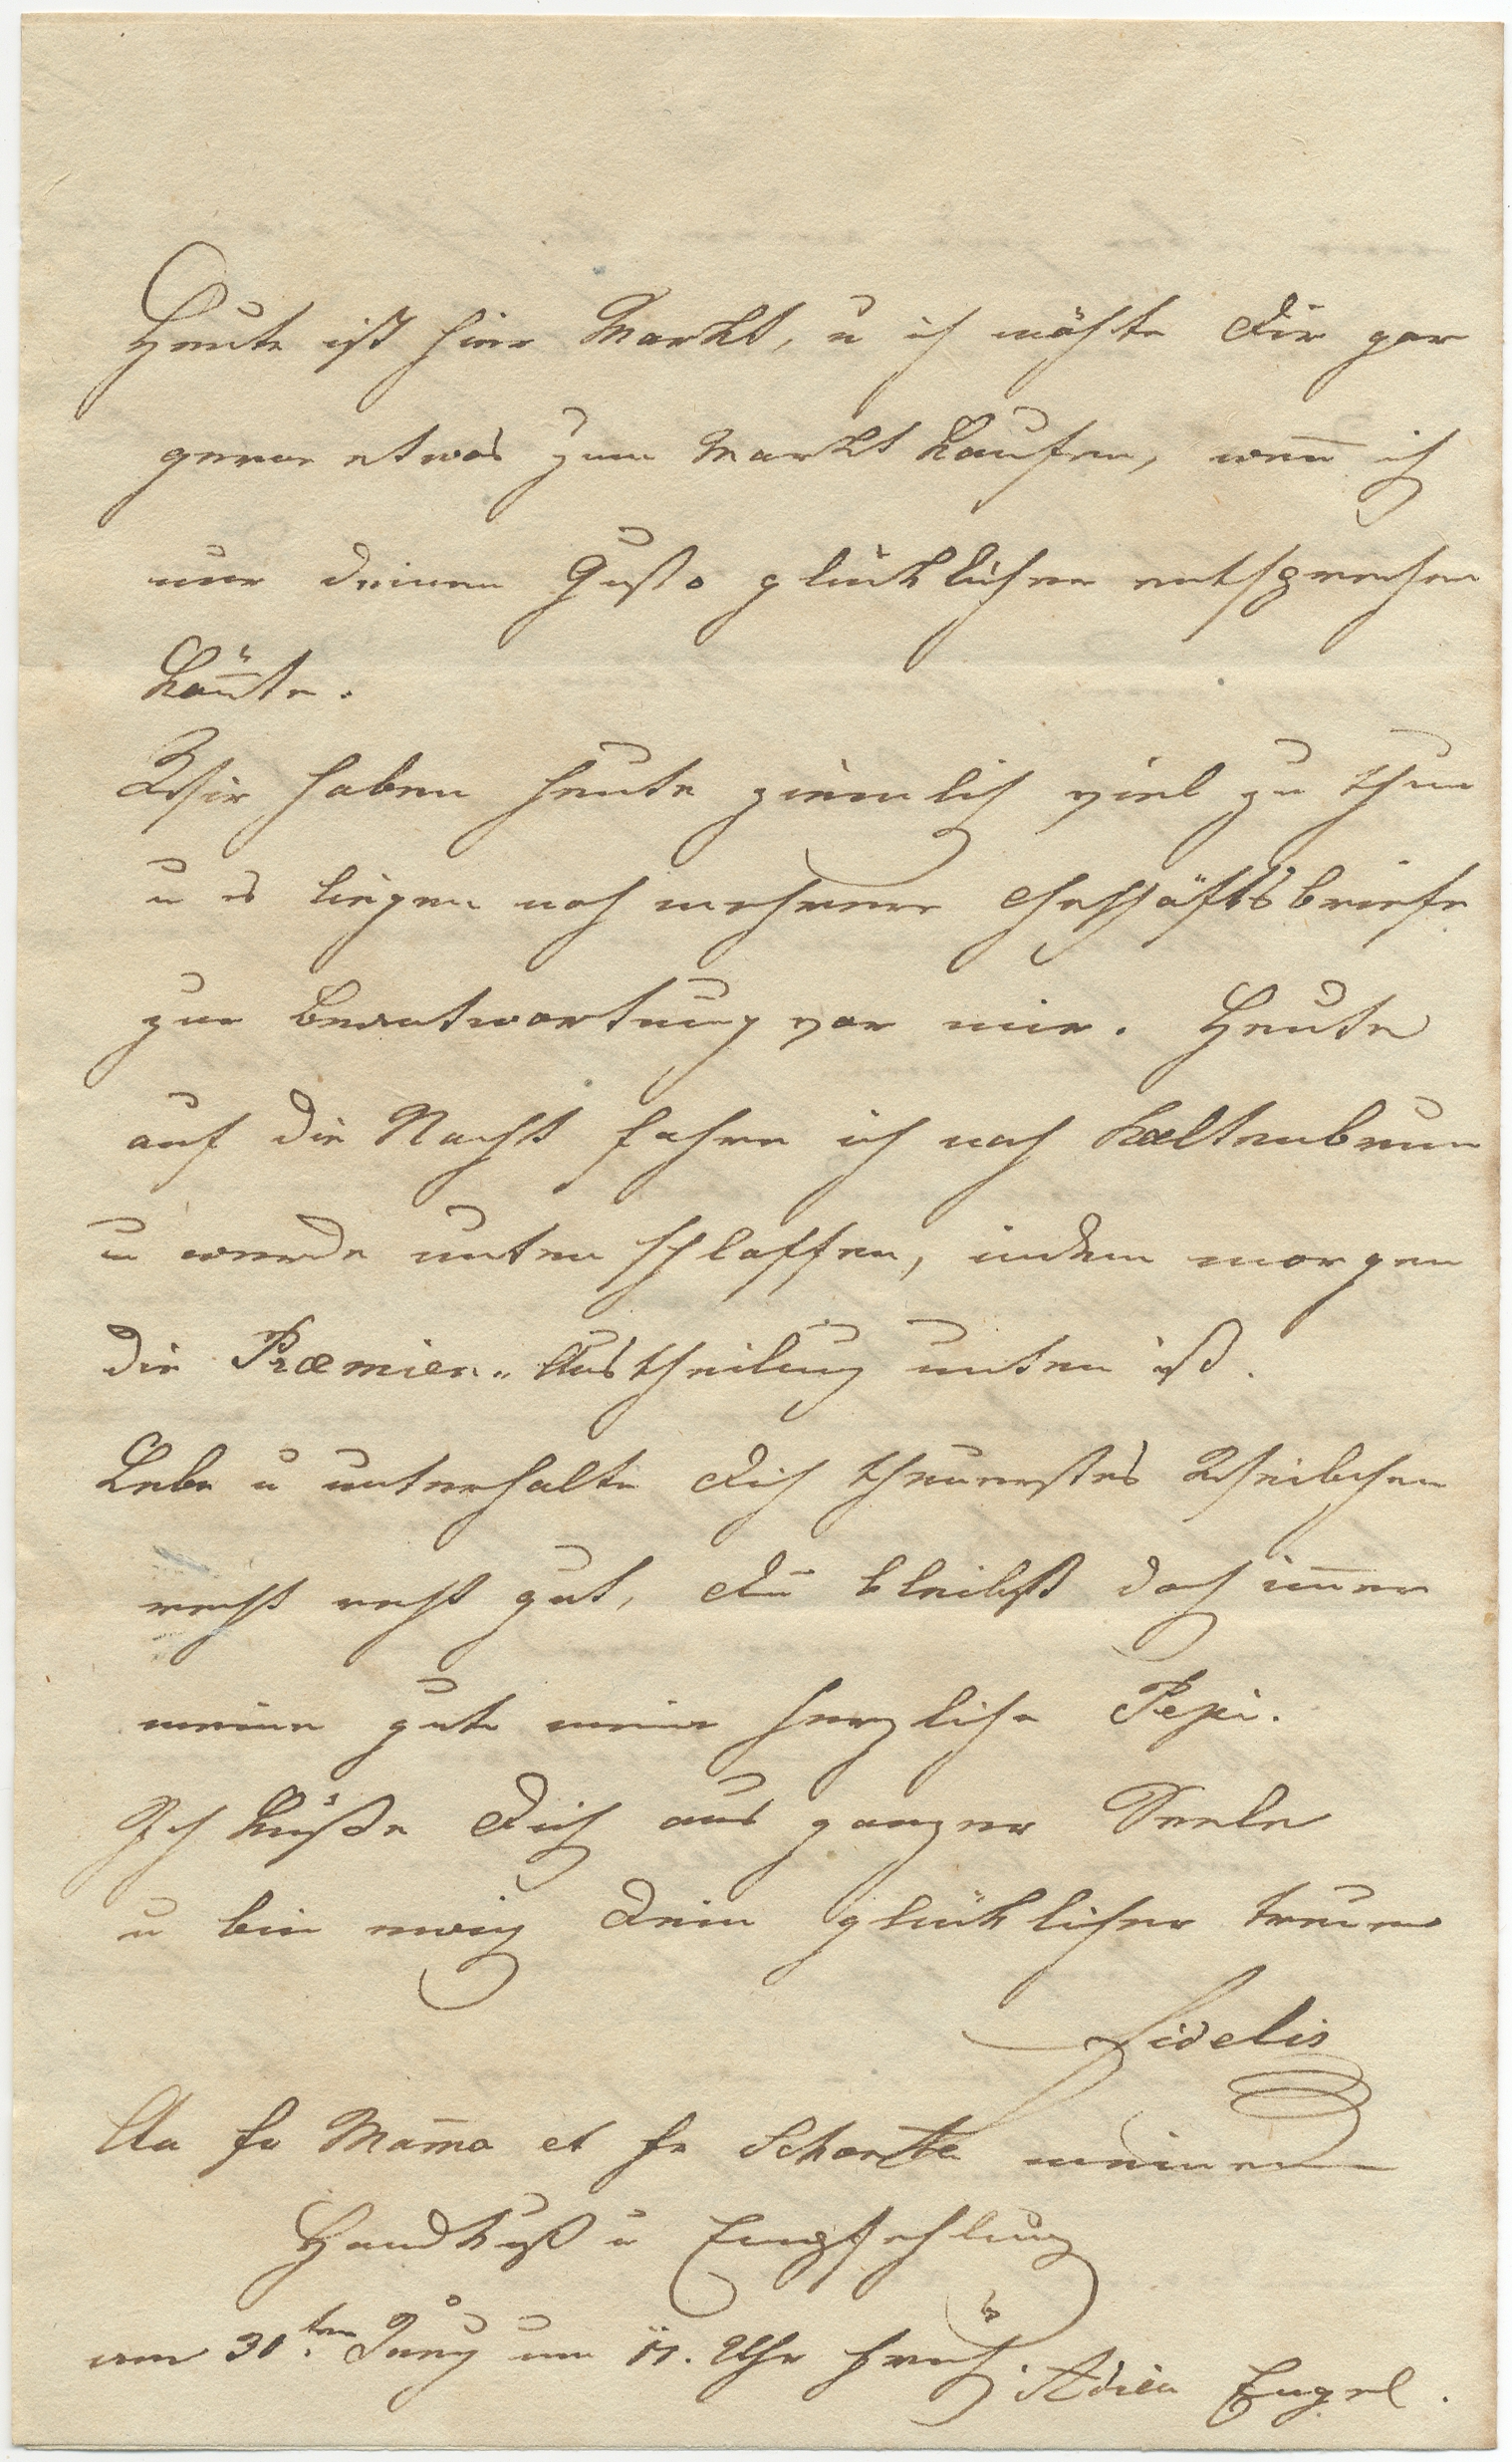 Heute ist hier Markt, u ich möchte Dir gar
gerne etwas zum Markt kaufen, wen̅ ich
nur deinem Gusto glücklicher entsprechen
kön̅te.
Wir haben heute ziemlich viel zu thun
u es liegen noch mehrere Geschäftsbriefe
zur Beantwortung vor mir. Heute
auf die Nacht fahre ich nach Kaltenbrun
u werde unten schlaffen, indem morgen
die Præmien-Austheilung unten ist.
Lebe u unterhalte Dich theuerstes Weibchen
recht recht gut, Du bleibst doch im̅er
meine gute meine herzliche Pepi.
Ich küße Dich aus ganzer Seele
u bin ewig Dein glücklicher treuer
Fidelis
An Fr Mam̅a et Fr meinen
Handkuß u Empfehlung
am 30ten Juny um 11. Uhr früh. Adieu Engel.